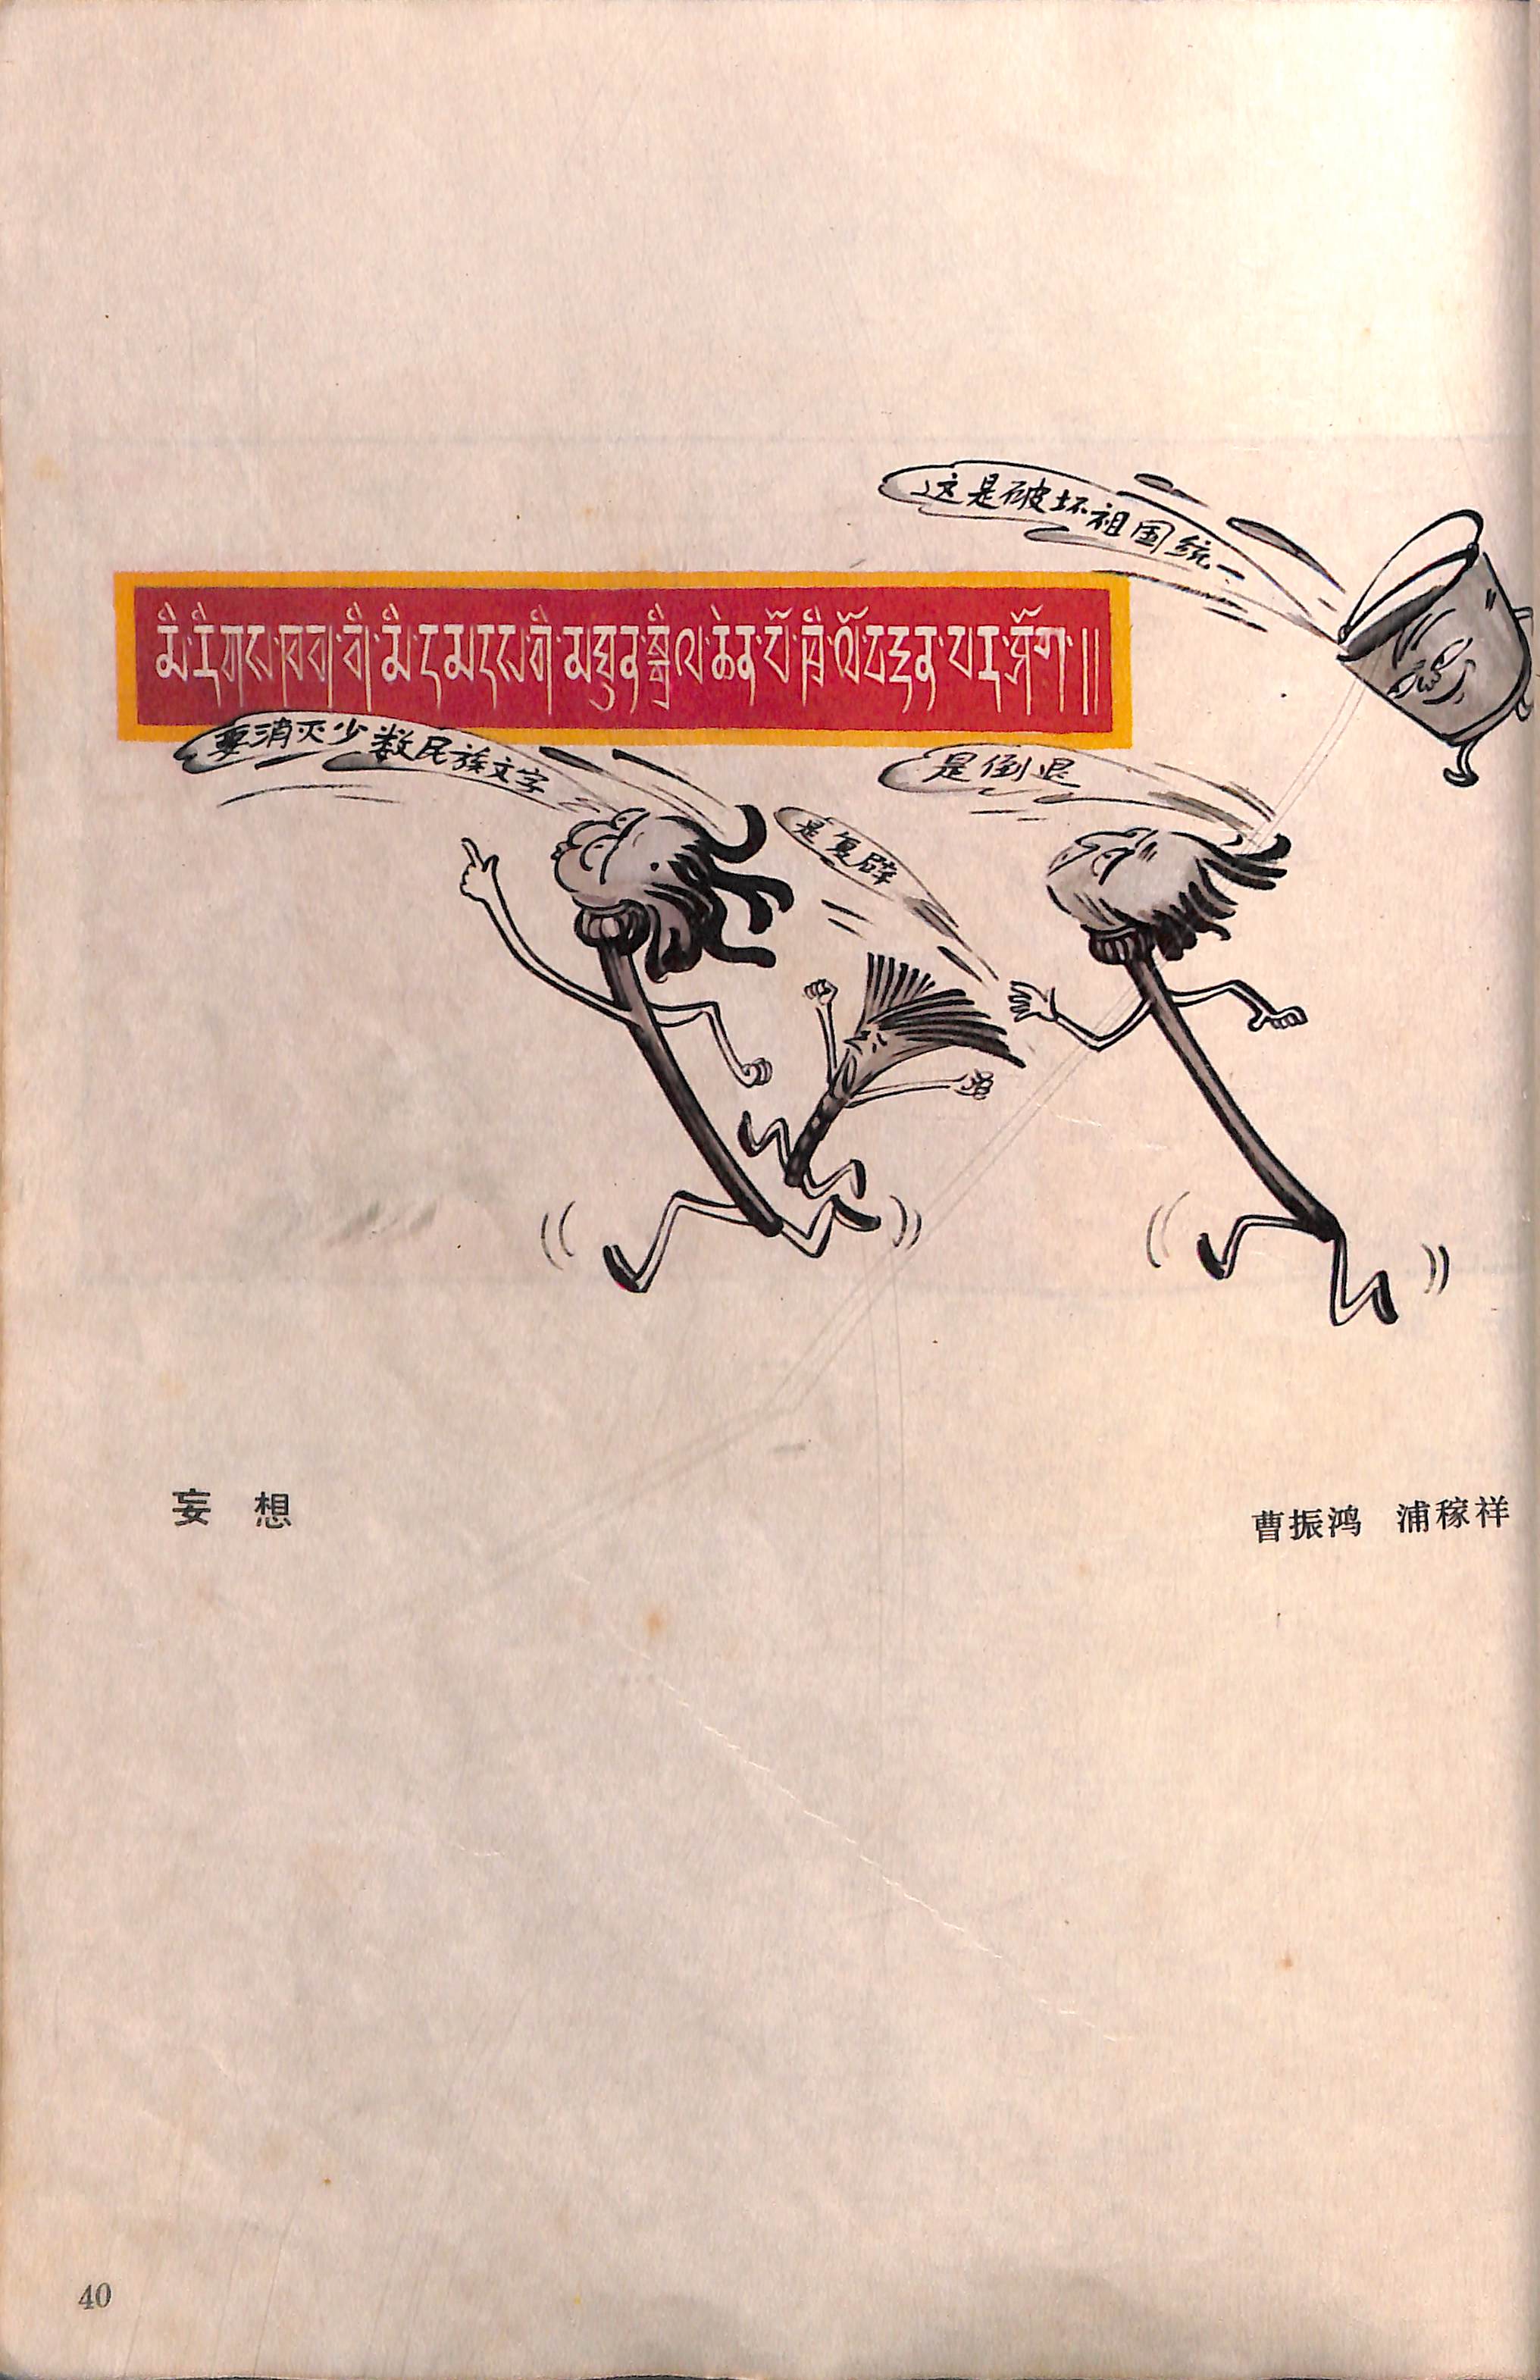 这是破坏祖国统一
མི་རིགས་ཁག་གི་མི་དམངས་གི་མཐུན་སྒྲིལ་ཆེན་པོ་ཁྲི་ལོ་བརྟན་པར་ཤོག།།
要消灭少数民族文字
是倒退
是复辟
妄想
曹振鸿 浦稼祥
40